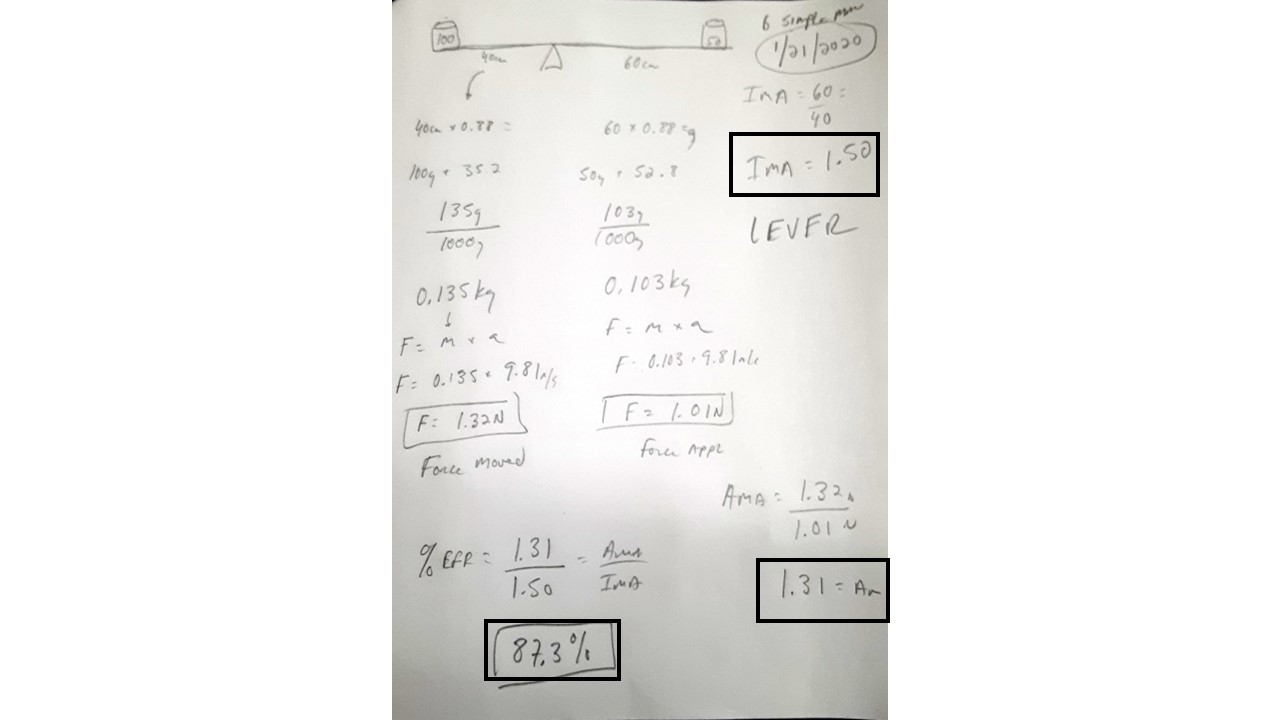 6 Simple
1/21/2020
100
50
40cm
60cm
IMA = 60 =
40
40cm × 0.88 =
60 × 0.88 = g
IMA = 1.50
100g + 35.2
50g + 52.8
135g
1000g
103g
1000g
LEVER
0.135kg
0.103kg
F = m × a
F = m × a
F = 0.135 × 9.81m/s
F = 0.103 × 9.81
F = 1.32N
F = 1.01N
Force moved
Force APPL
AMA = 1.32N
1.01 N
% EFF = 1.31 = AMA
1.50 IMA
1.31 = Am
87.3%